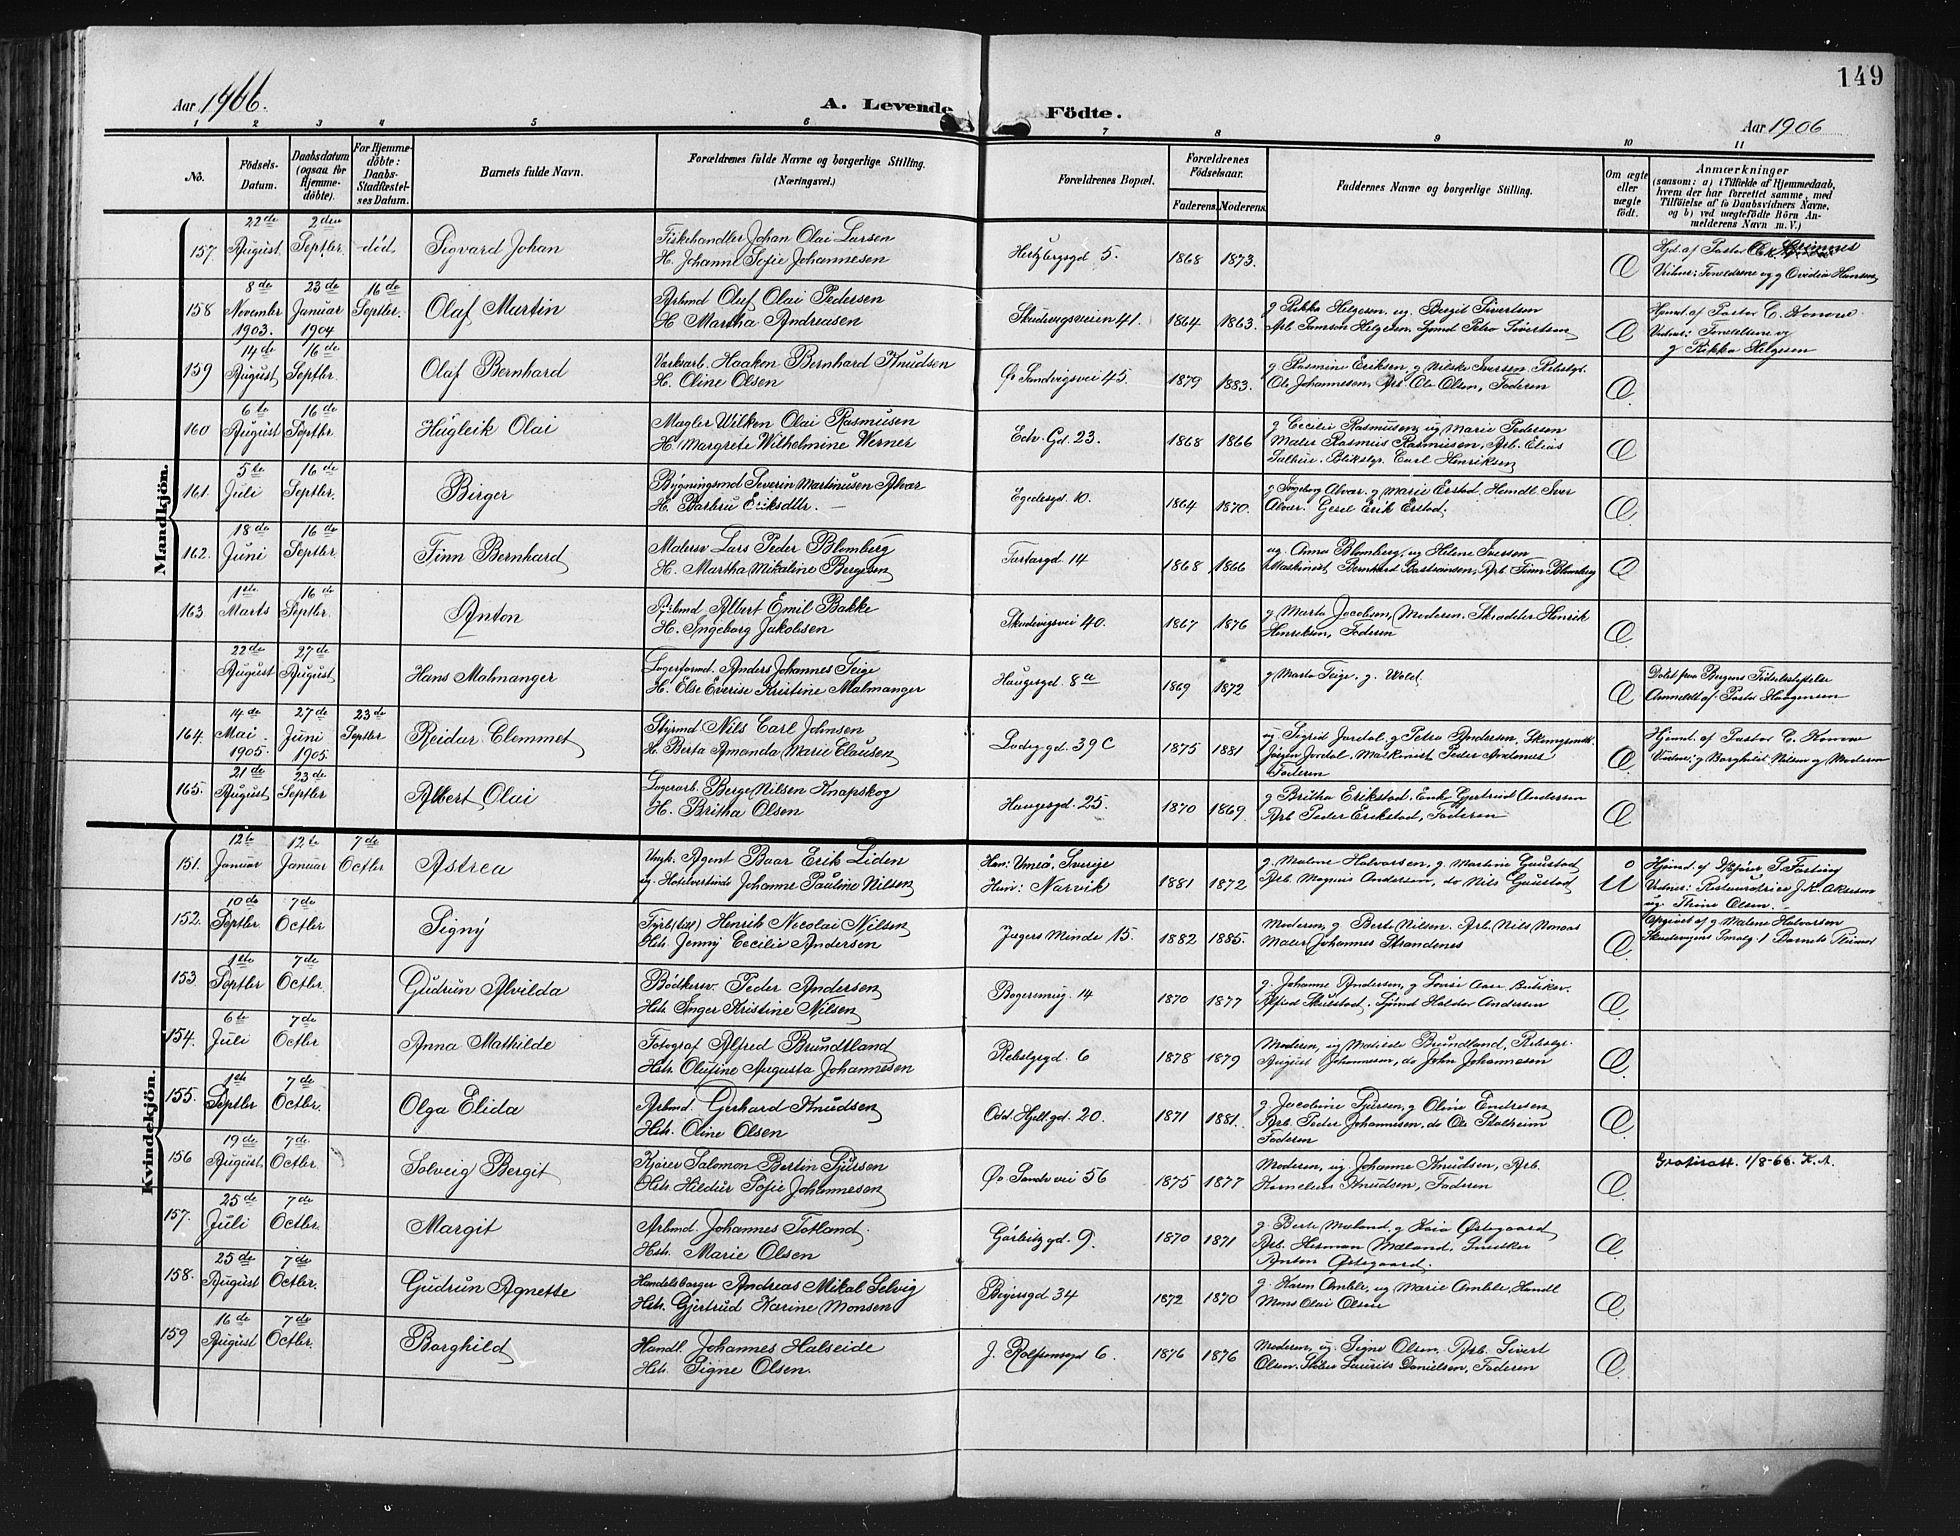 149
Aar 1906.
A. Levende Födte.
Aar 1906
1 2 3 4 5 6 7 8 9 10 11
No.
Födsels-
Datum.
Daabsdatum
(ogsaa for
Hjemme-
döbte).
For Hjemme-
döbte:
Daabs-
Stadfæstel-
ses Datum.
Barnets fulde Navn.
Forældrenes fulde Navne og borgerlige Stilling.
(Næringsvei.)
Forældrenes Bopæl.
Forældrenes
Födselsaar.
Faderens. Moderens.
Faddernes Navne og borgerlige Stilling.
Om ægte
eller
uægte
födt.
Anmærkninger
(saasom: a) i Tilfælde af Hjemmedaab,
hvem der har forrettet samme, med
Tilföielse af to Daabsvidners Navne,
og b) ved uægtefödte Börn An-
melderens Navn m. V.)
Mandkjön.
157. 22de August 2den Septbr. död Sigvard Johan
Fiskehandler Johan Olai Larsen
H. Johanne Sofie Johannesen
Hertzbergsgd 5. 1868 1873. Æ
Hjd. af Pastor
Vidner: Forældrene og g Ovidia Hansen
158 8de November 1903. 23de Januar 1904 16de Septbr. Olaf Martin
Arbmd Oluf Olai Pedersen
H. Martha Andreasen
Skudevigsveien 41. 1864 1863.
g Rikka Helgesen, ug Bergit Sivertsen
Arb Samson Helgesen, Sjömd Petro Sivertsen
Æ
Hjemd. af Pastor C. Konow
Vidner: Forældrene og
g Rikka Helgesen
159 14de August 16de Septbr. Olaf Bernhard
Værkarb. Haaken Bernhard Knudsen
H. Oline Olsen
Øv Sandvigsvei 45. 1879 1883.
g Rasmine Eriksen, g Nilske Iversen. Rebslgr.
Ole Johannesen, Arb Ole Olsen, Faderen
Æ
160 6te August 16de Septbr. Hugleik Olai
Mægler Wilken Olai Rasmusen
H. Margrete Wilhelmine Werner
Edv. Gd. 23. 1868 1866
g Cecilie Rasmusen, ug Marie Pedersen
Maler Rasmus Rasmusen, Arb. Elias
Blikslgr. Carl Henriksen
Æ
161. 5te Juli 16de Septbr. Birger
Bygningsmd Severin Martinusen Alvær
H. Barbru Eriksdtr. —
Egedesgd 10. 1864 1870.
g Ingeborg Alvær. g Marie Erstad. Handl Iver
Alvær. Gesel Erik Erstad.
Æ.
162. 18de Juni 16de Septbr Finn Bernhard
Malersv Lars Peder Blomberg
H. Martha Mikaline Bergesen
Tartargd 14 1868 1866
ug. Anna Blomberg, ug Helene Iversen
Maskinist Bernhard Bastiansen, Arb. Finn Blomberg
Æ
163 1ste Marts 16de Septbr Anton
Arbmd Albert Emil Bakke
H. Ingeborg Jakobsen
Skudevigsvei 40. 1867 1876
g Marta Jacobsen, Moderen. Skrædder Henrik
Henriksen, Faderen
Æ.
22de August 27de August Hans Malmanger
Lagerformd. Anders Johannes Teige
H. Else Everise Kristine Malmanger
Haugesgd. 8a 1869 1872
g Marta Teige. g. Wold
Æ
Döbt fra Bergens Födselsstiftelse
Anmeldt af Pastor Haagensen
164. 14de Mai 1905. 27de Juni 1905. 23de Septbr Reidar Clemmet
Styrmd Nils Carl Johnsen
H. Berta Amanda Marie Clausen
Ladeggd 39 C 1875 1881
ug Sigrid Jordal, g Petra Andersen,
Jörgen Jordal, Maskinist Peder Andersen
Faderen
Æ
Hjemd. af Pastor C. Konow
Vidner: g Borghild Nilsen og Moderen
165. 21de August 23de Septbr Albert Olai
Lagerarb. Berge Nilsen Knapskog
H. Britha Olsen
Haugesgd. 25. 1870 1869.
g Britha Erikstad. Enke Gjertrud Andersen
Arb Peder Erikstad, Faderen
Æ
Kvindekjön.
151. 12te Januar 12te Januar 7de Octbr Astrea
Ungk. Agent Baar Erik Liden
ug. Hotelvertinde Johanne Pauline Nilsen
Han: Umeå, Sverige
Hun: Narvik
1881 1872
g. Malene Halvorsen, g. Martine Gaustad
Arb. Magnus Andersen, do Nils Gaustad
U
Hjemd. af S. Fasting
Vidner: Restauratrice J. K. Aksesen
og Thrine Olsen.
Opgivet af g Malene Halvorsen
152. 10de Septbr 7de Octbr. Signy
Fyrb. Henrik Nicolai Nilsen
Hstr. Jenny Cecilie Andersen
Jægers Minde 15 1882 1885.
Moderen, g Berte Nilsen. Arb. Nils Monsas
Maler Johannes Strandenes
Æ
153 1ste Septbr 7de Octbr. Gudrun Alvilda
Bödkersv. Peder Andersen
Hstr. Inger Kristine Nilsen
Bøgersmug. 14 1870 1877
g. Johanne Andersen, g Lovise Aase Butiker.
Alfred Skeistad, Sjömd Haldor Andersen
Æ.
154. 6te Juli 7de Octbr Anna Mathilde
Fotograf Alfred Brundtland
Hstr. Olufine Augusta Johannesen
Rebslgsgd. 6 1878 1879
Moderen, ug Mathilde Brundland, Rebslgr.
August Johannesen, do John Johannesen
Æ.
155. 1ste Septbr 7de Octbr. Olga Elida
Arbmd. Gerhard Knudsen
Hstr. Oline Olsen
Odd. Hjeltgd. 20. 1871 1881.
g. Jacobine Sjursen, g Oline Endresen
Arb. Peder Johannesen, do Ole Stalheim
Faderen
Æ.
156 19de August 7de Octbr. Solveig Bergit
Kjører Salomon Bertin Sjursen
Hstr. Hildur Sofie Johannesen
Øv Sandv vei 56 1875 1877
Moderen, ug Johanne Knudsen, Arb.
Kornelius Knudsen, Faderen
Æ.
1/8-66. K. A.
157. 25de Juli 7de Octbr. Margit
Arbmd. Johannes Totland.
Hstr. Marie Olsen
Görbitzgd 9. 1870 1871
g. Berte Mæland, g Kaia Østegaard
Arb. Herman Mæland. Snedker
Anton Østegaard.
Æ.
158. 25de August 7de Octbr. Gudrun Agnette
Handelsborger Andreas Mikal Selvig
Hstr. Gjertrud Karine Monsen
Bøgersgd 34 1872 1870
g. Karen Amble, ug Marie Amble, Handl
Mons Olai Olsen
Æ
159 16de August 7de Octbr. Borghild
Handl. Johannes Halseide
Hstr. Signe Olsen.
J. Rolfsensgd 6. 1876 1876
Moderen, ug. Signe Olsen. Arb. Sivert
Olsen, Laurits Danielsen, Faderen
Æ.